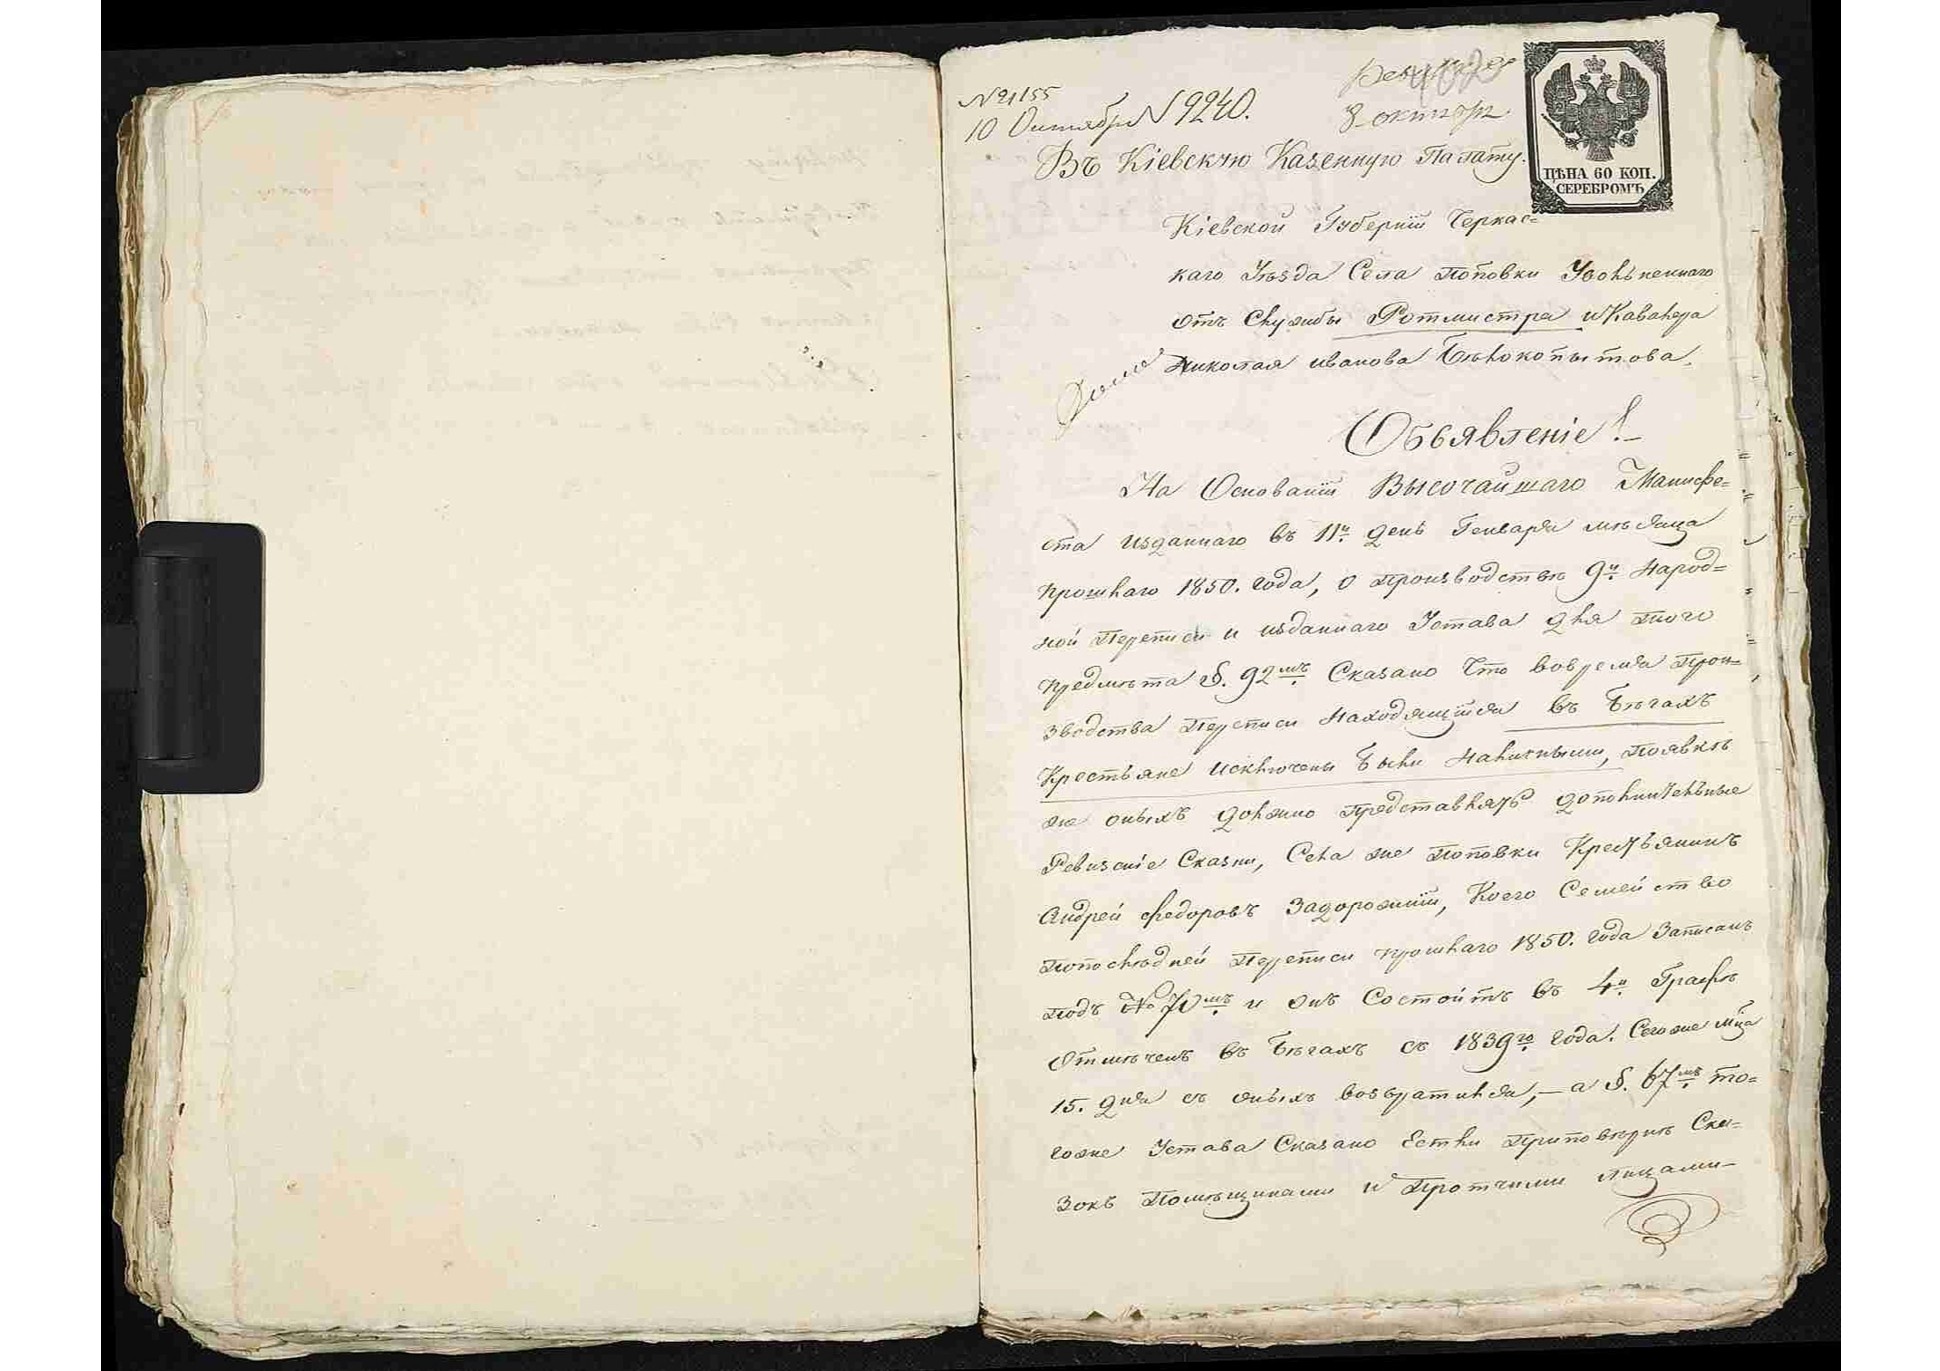 № 21155
10 Октября № 9240.
8 октября
ЦѢНА 60 КОП.
СЕРЕБРОМЪ
Въ Кіевскую Казенную Палату.
Кіевской Губерніи Черкас=
каго Уѣзда Села Поповки Уволненнаго
отъ Службы Ротмистра и Кавалера
Николая иванова Бѣлокопытова.
Объявленіе!
На Основаніи Высочайшаго Манифе=
ста изданнаго въ 11й. день Генваря мѣсяца
прошлаго 1850. года, о производствѣ 9й. Народ=
ной Переписи и изданнаго Устава для того
предмѣта §. 92мъ. Сказано Что вовремя Прои=
зводства Переписи Находящіися въ Бѣгахъ
Крестьяне исключены были Наличными, Появкѣ
же оныхъ должно Представлять дополнительные
Ревизскіе Сказки, Села же Поповки Крестьянинъ
Андрей федоровъ Задорожній, Коего Семейство
Попослѣдней Переписи прошлаго 1850. года Записанъ
Подъ № 70мъ. и онъ Состоитъ въ 4й. Графѣ
Отмѣченъ въ Бѣгахъ съ 1839го. года. Сегоже мца
15. дня съ оныхъ возвратился,— а §. 67мъ. то=
гоже Устава Сказано Естли Приповѣркѣ Ска=
зокъ Помѣщиками и Протчими лицами